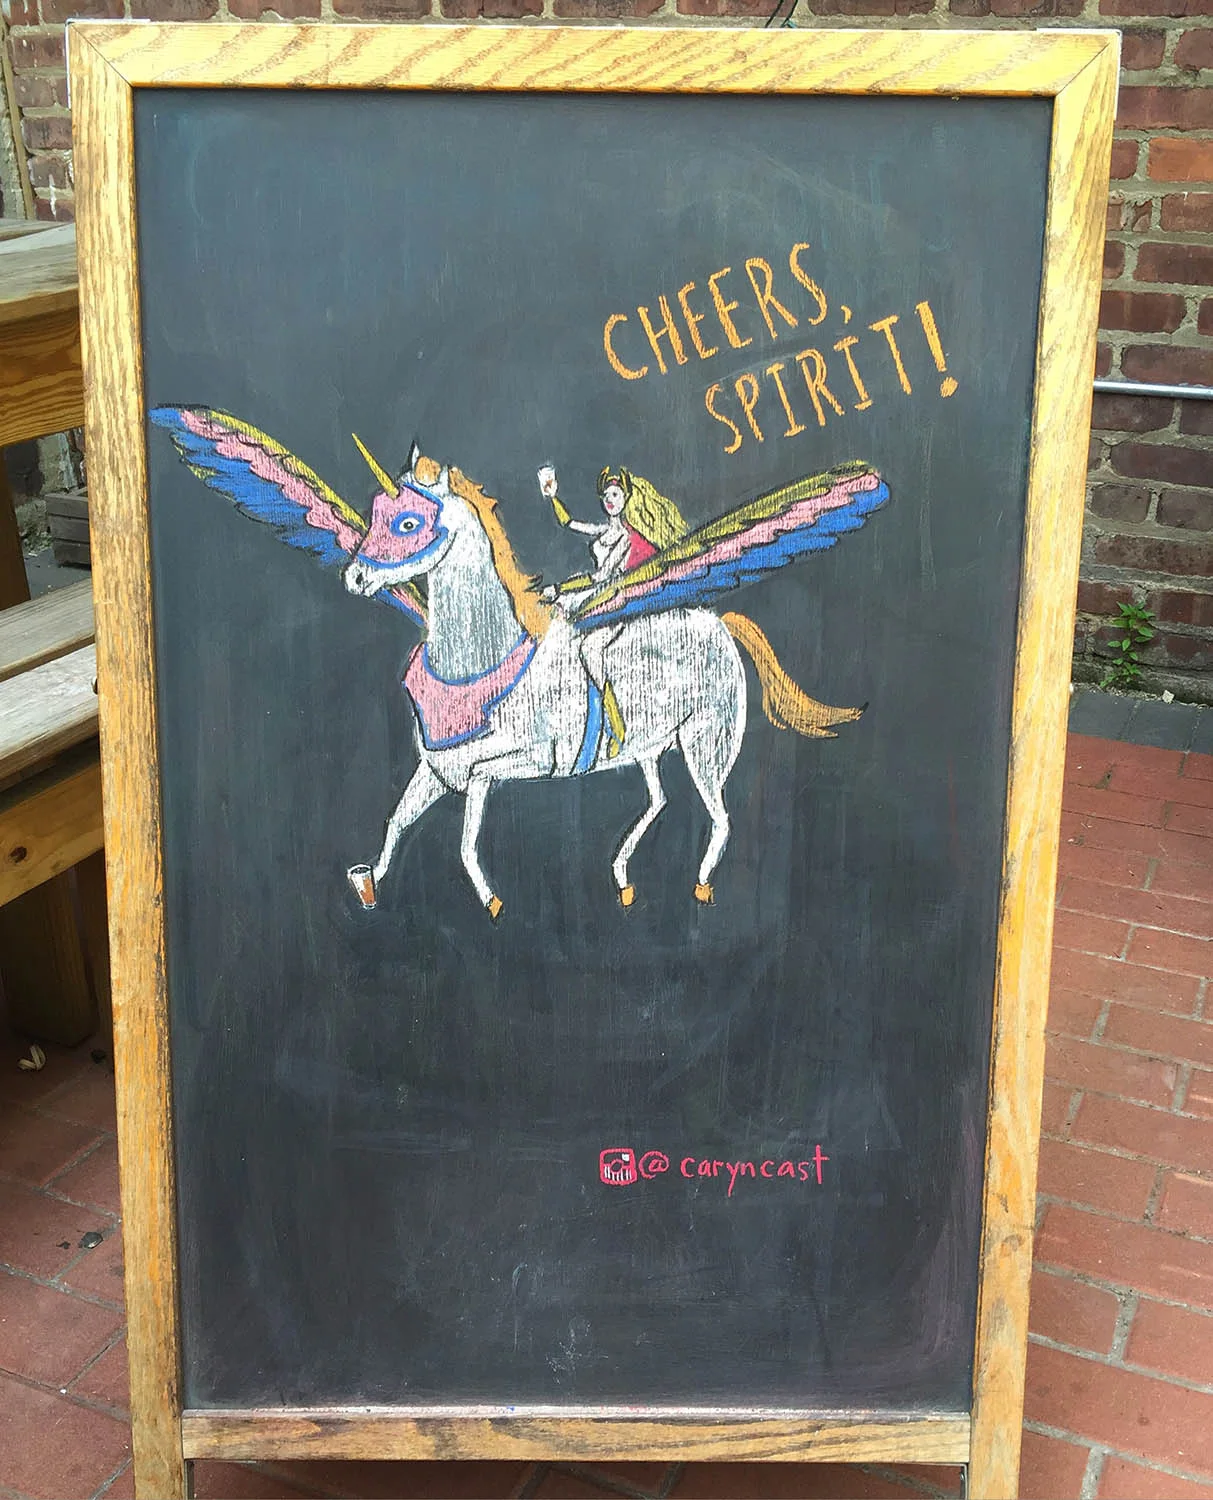 CHEERS,
SPIRIT!
@caryncast